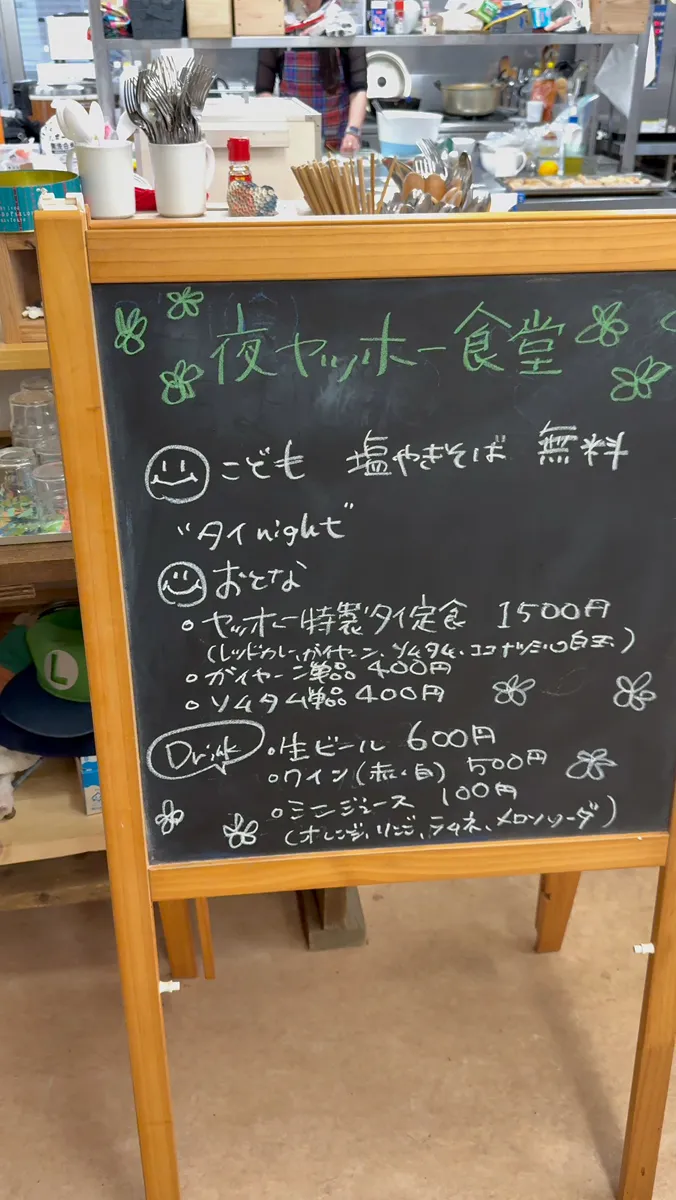 夜ヤッホー食堂
こども 塩やきそば 無料
"タイnight"
おとな
ヤッホー特製タイ定食 1500円
(レッドカレー、ガイヤーン、ソムタム、ココナッツミルク白玉)
ガイヤーン単品 400円
ソムタム単品 400円
Drink
生ビール 600円
ワイン(赤、白) 500円
ミニジュース 100円
(オレンジ、リンゴ、ラムネ、メロンソーダ)
L